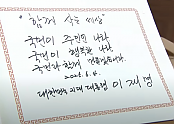 "함께 사는 세상"
국민이 주인인 나라
국민이 행복한 나라,
국민과 함께 만들겠습니다.
2025. 6. 4.
대한민국 21대 대통령 이재명